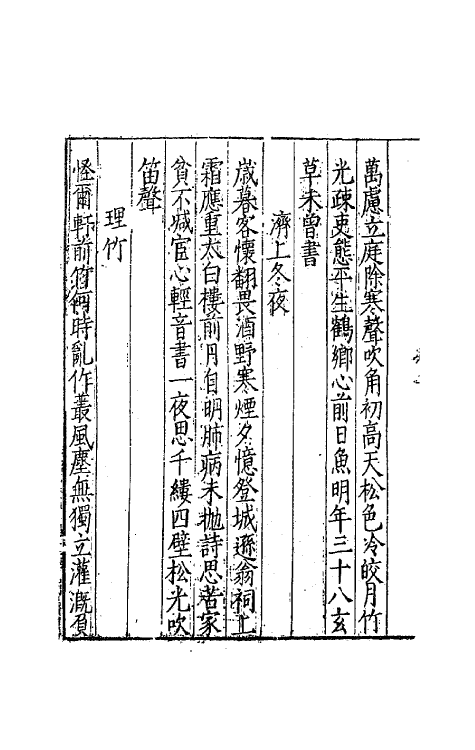 萬慮立庭除寒聲吹角初高天松色冷皎月竹
光疎吏態平生鶴鄉心前日魚明年三十八玄
草未曾書
濟上冬夜
歲暮客懷翻畏酒野寒煙夕憶登城遜翁祠上
霜應重太白樓前月自明肺病未抛詩思苦家
貧不減宦心輕音書一夜思千縷四壁松光吹
笛聲
理竹
怪爾軒前竹時亂作叢風塵無獨立灌溉負